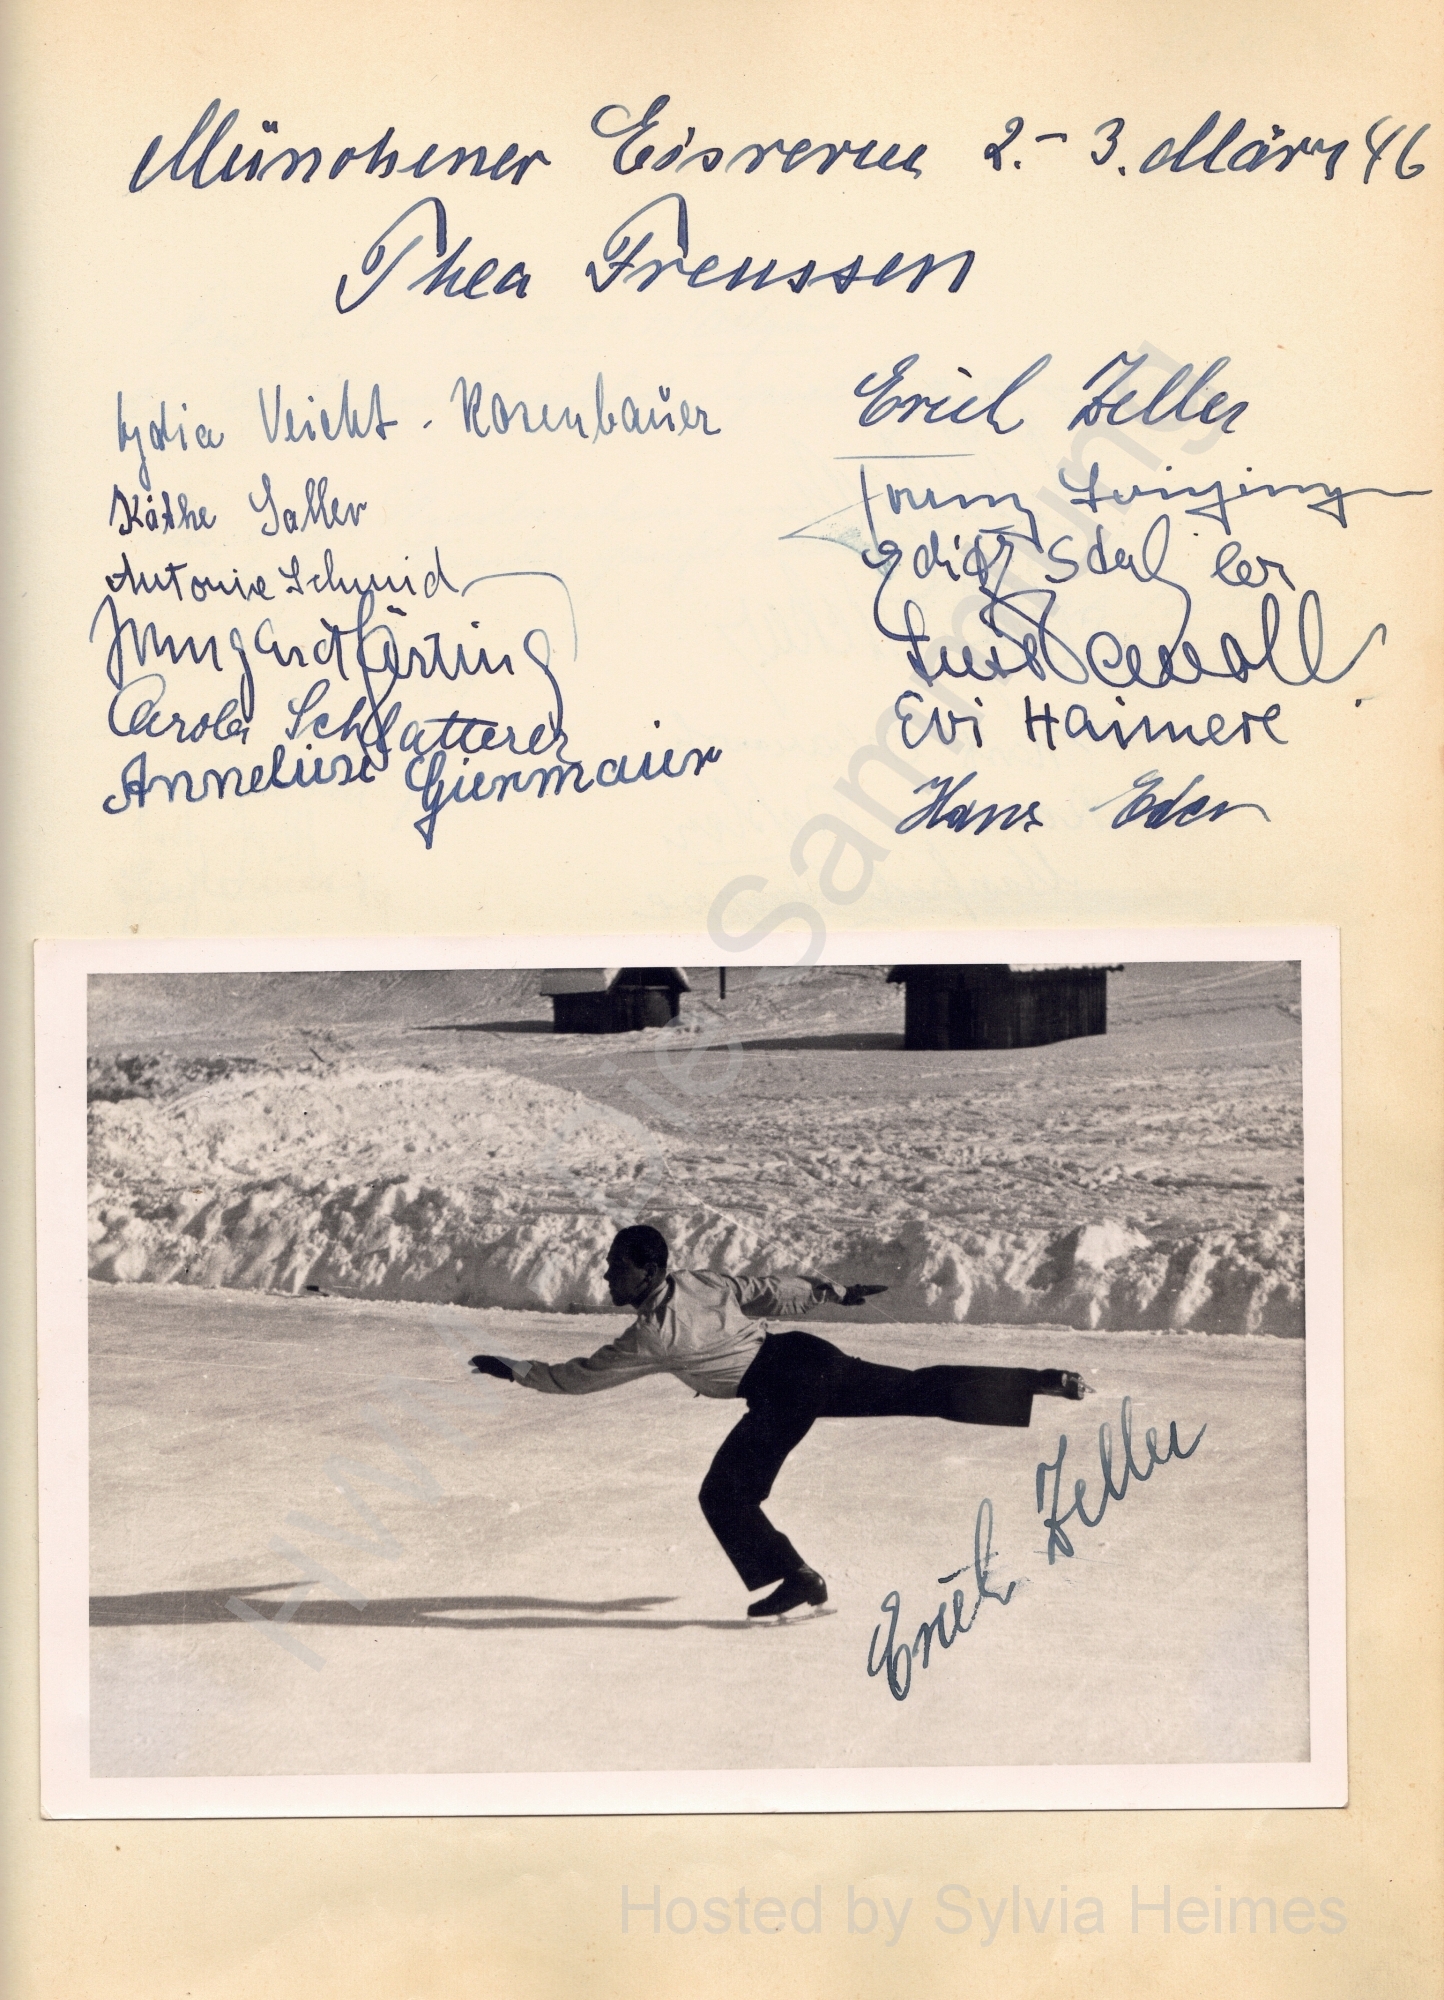 Münchener Eisrevue 2.-3. März 46
Thea Frenssen
Lydia Veicht - Rosenbauer
Käthe Saller
Antonie Schmid
Irmgard Förting
Carola Schlatterer
Anneliese Giermaier
Erich Zeller
Edith Stadler
Evi Haimerl
Hans Eder
Erich Zeller
Sammlung
Hosted by Sylvia Heimes